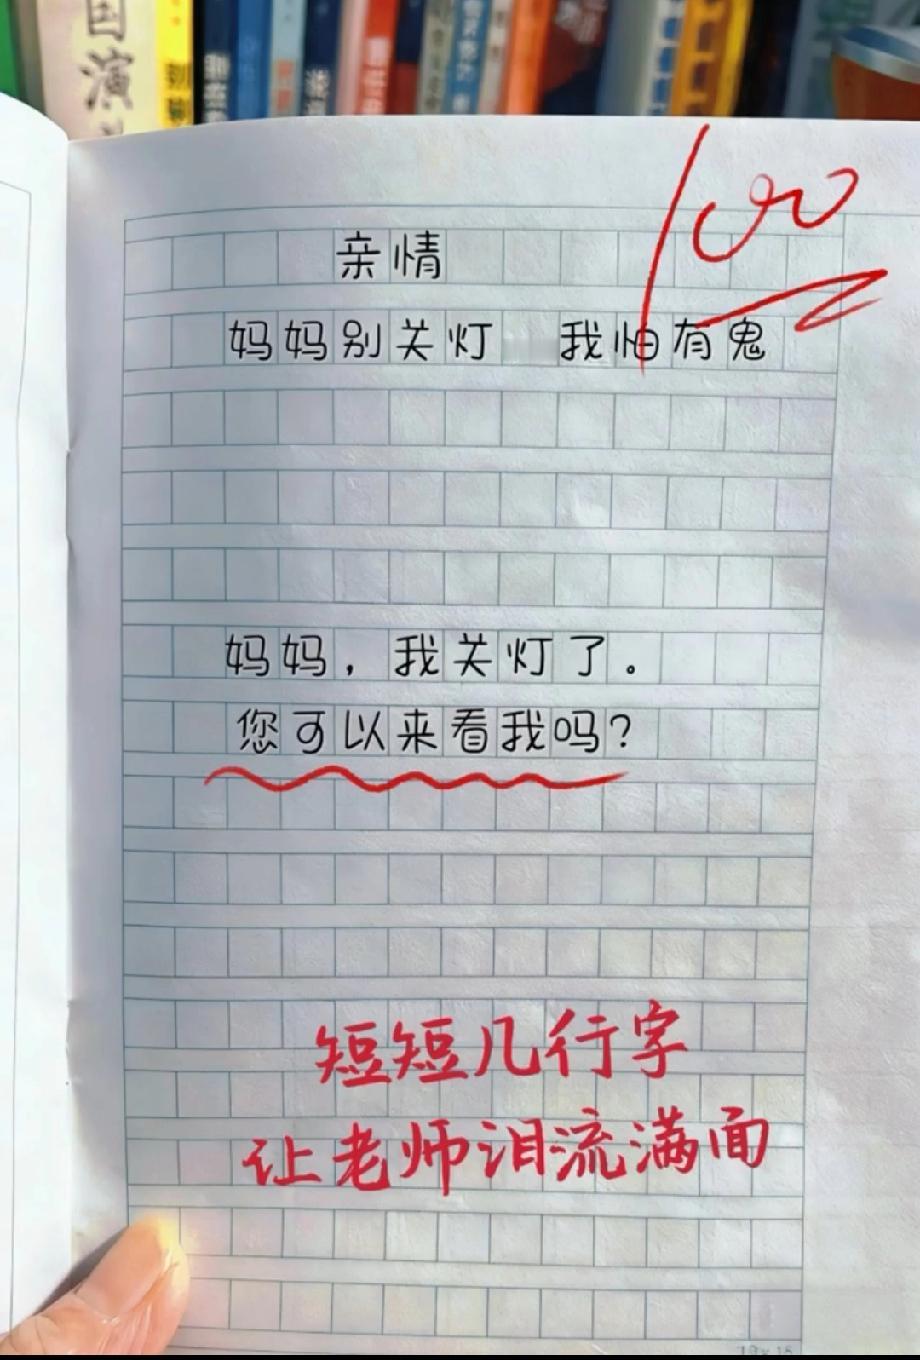 国演
100
亲情
妈妈别关灯 我怕有鬼
妈妈，我关灯了。
您可以来看我吗？
短短几行字
让老师泪流满面